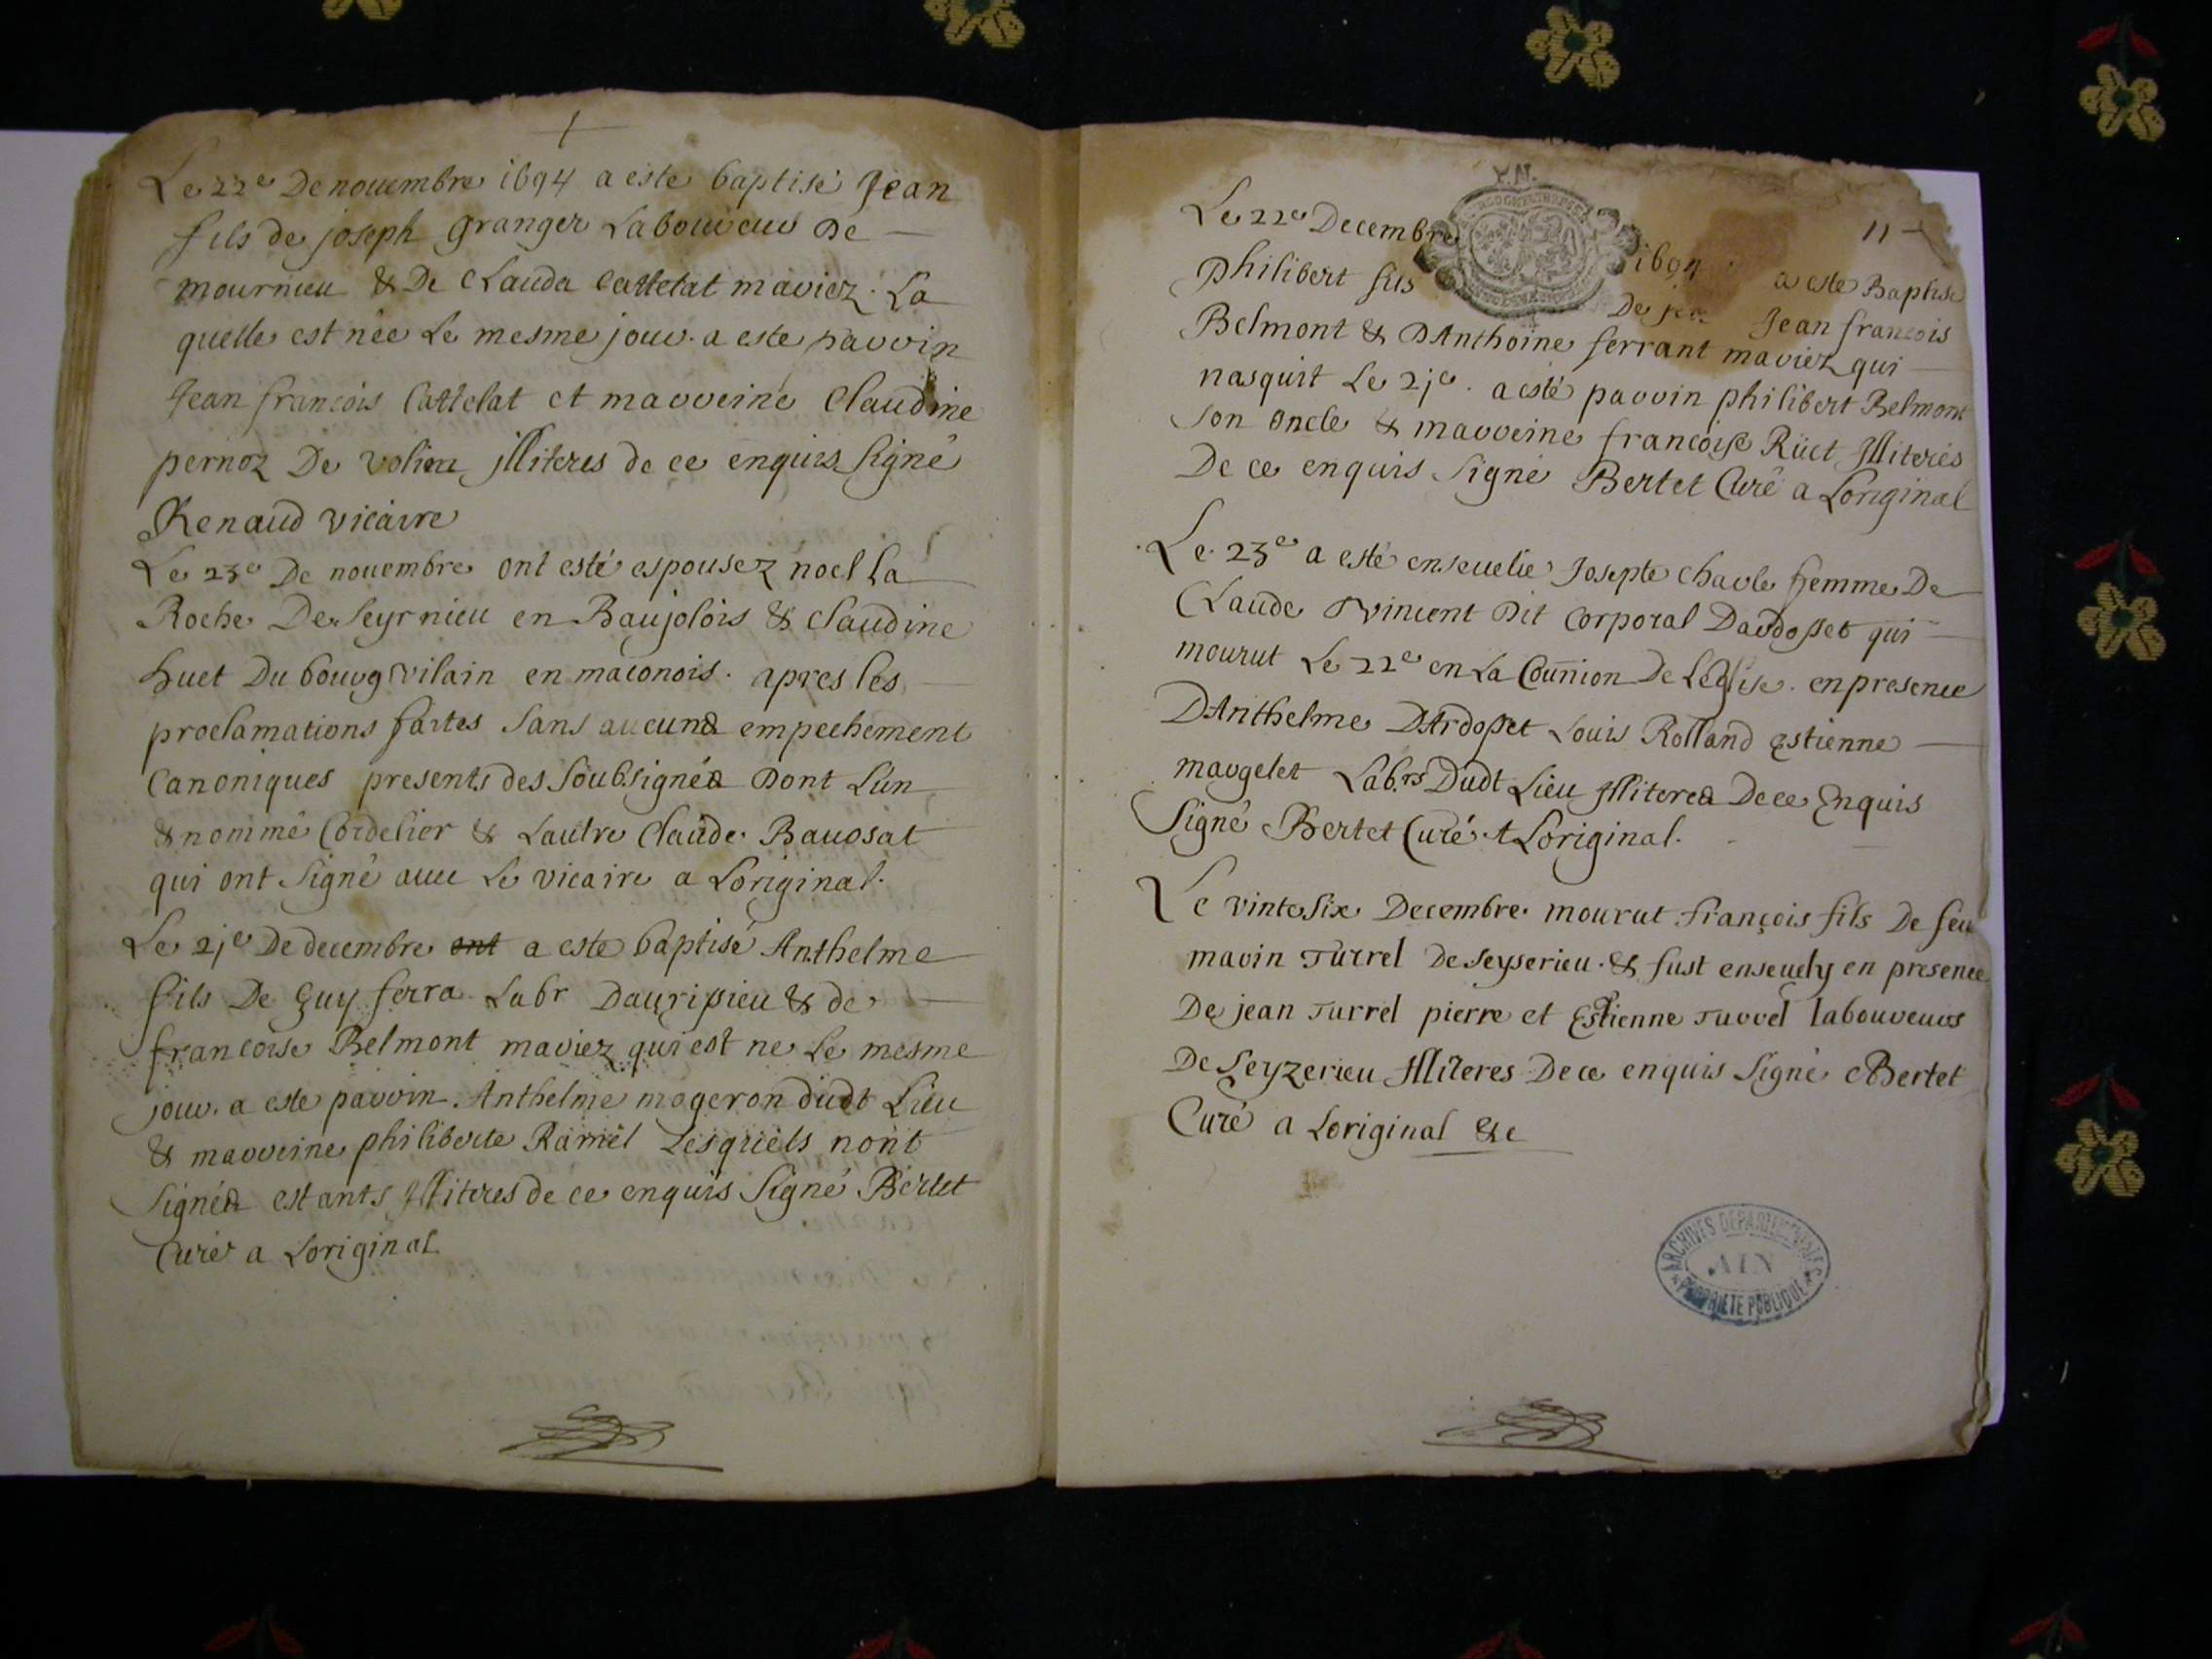 Le 22e De nouembre 1694 a este baptisé Jean
fils de joseph granger Laboureur De
mournieu & De Clauda Cattelat mariez. La
quelle est née Le mesme jour. a este parrin
Jean francois Cattelat et marreine Claudine
pernoz De volien illiteres de ce enquis signé
Renaud vicaire
Le 23e De nouembre ont esté espousez noel la
Roche De Seyrnieu en Baujolois & Claudine
huet Du bourg vilain en maconois. apres les
proclamations faites sans aucuns empechement
Canoniques presents des soubsignés Dont Lun
& nommé Cordelier & Lautre Claude Barosat
qui ont signé auec Le vicaire a Loriginal.
Le 21e De decembre ont a este baptisé Anthelme
fils De Guy ferra Labr Daurissieu & de
francoise Belmont mariez qui est ne Le mesme
jour. a este parrin. Anthelme mogeron dudt Lieu
& marreine philiberte Ramel Lesquels nont
signés estants illiteres de ce enquis signé Bertet
Curé a Loriginal
P.N.
11
Le 22e Decembre 1694 a este Baptisé
Philibert fils De Jean francois
Belmont & DAnthoine ferrant mariez qui
nasquit Le 21e. a esté parrin philibert Belmont
son oncle & marreine francoise Rüet Illiterés
De ce enquis signé Bertet Curé a Loriginal
Le 23e a esté enseuelie Josepte Charle femme De
Claude Vincent Dit Corporal Dardosset qui
mourut Le 22e en La Coũnion De Leglise. en presence
DAnthelme DArdosset Louis Rolland Estienne
maugelet Labrs Dudt Lieu Illiteres De ce Enquis
signé Bertet Curé. A Loriginal.
Le vinte six Decembre mourut françois fils De feu
marin Turrel De seyserieu. & fust enseuely en presence
De jean Turrel pierre et Estienne Turrel laboureurs
De Seyzerieu Illiteres De ce enquis signé Bertet
Curé a Loriginal &c
ARCHIVES DEPARTEMENTALES
AIN
PROPRIETE PUBLIQUE